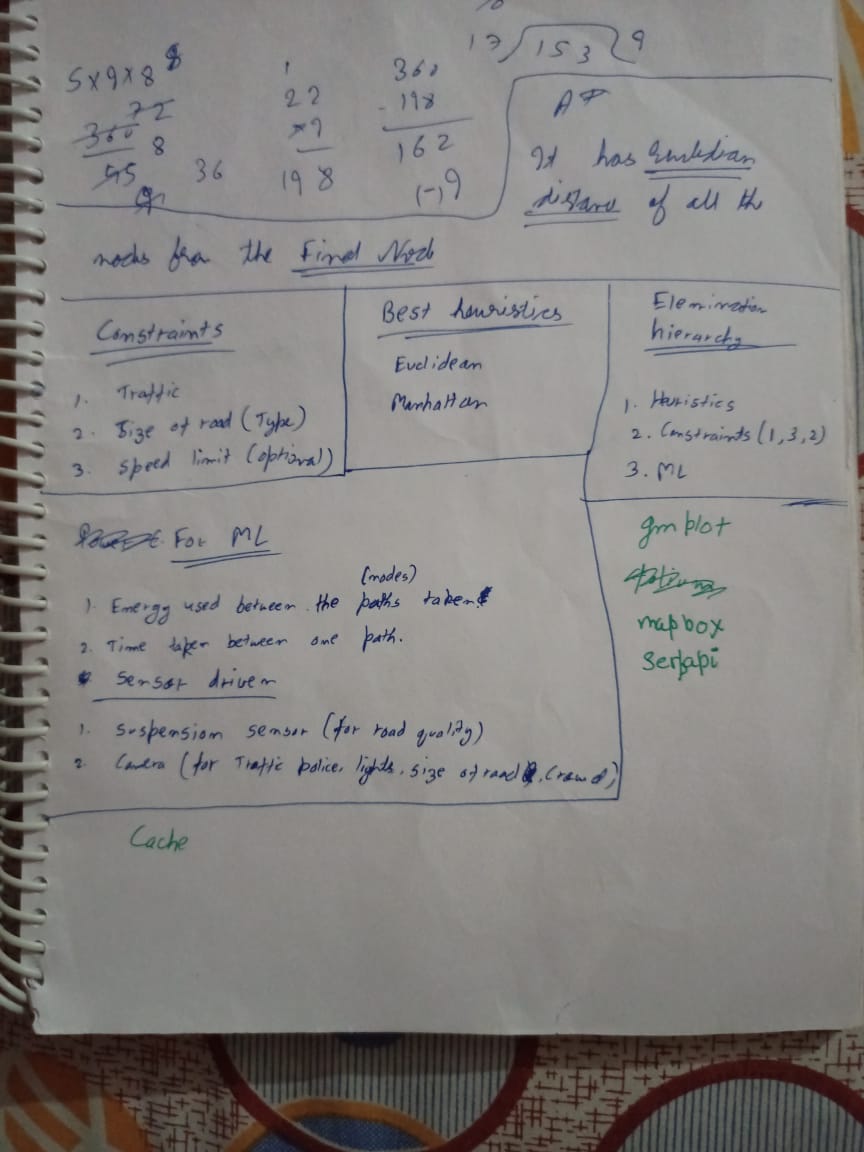 5x9x8 8
72
360
8
55
9
36
1
22
x9
198
360
- 198
162
(-)9
17 153 9
A*
It has Euclidian
distance of all the
nodes from the Final Node
Constraints
1. Traffic
2. Size of road (Type)
3. Speed limit (optional)
Best heuristics
Euclidean
Manhattan
Elemination
hierarchy
1. Heuristics
2. Constraints (1,3,2)
3. ML
For ML
(nodes)
1. Energy used between the paths taken
2. Time taken between one path.
Sensor driven
1. Suspension sensor (for road quality)
2. Camera (for Traffic police, lights, size of road, Crowd)
gmplot
mapbox
Serpapi
Cache